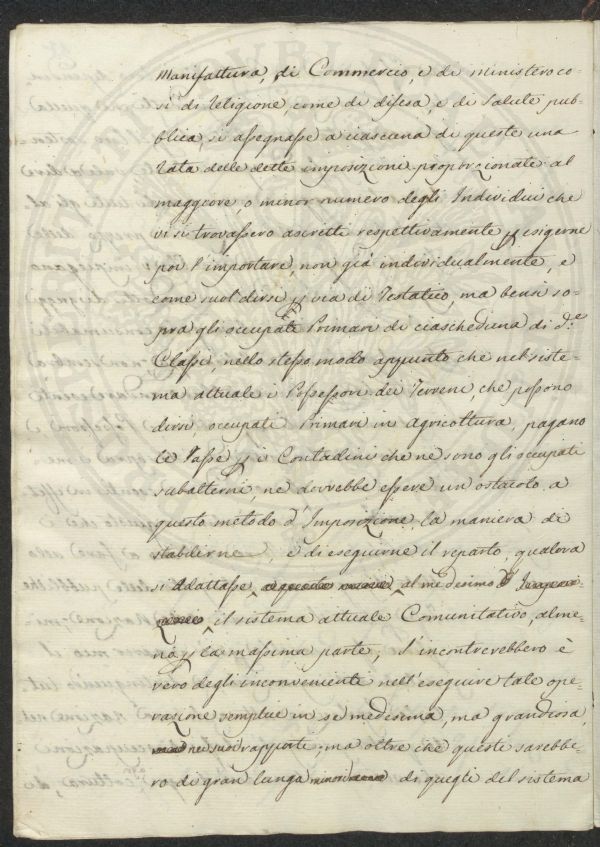 Manifattura, di Commercio, e di ministero co-
si di Religione, come di difesa, e di salute pub-
blica, si assegnasse a ciascuna di queste una
rata delle dette imposizioni proporzionate al
maggiore, o minor numero degli Individui che
vi si trovassero ascritti respettivamente p esigerne
poi l'importare, non già individualmente, e
come suol dirsi p via di Testatico, ma bensi so-
pra gli occupati Primari di ciascheduna di d.e
Classi, nello stesso modo appunto che nel siste-
ma attuale i Possessori dei Terreni, che possono
dirsi, occupati Primari in agricoltura, pagano
le Tasse p i Contadini che ne sono gli occupati
subalterni, ne dovrebbe essere un ostacolo a
questo metodo d'Imposizione la maniera di
stabilirne, e di eseguirne il reparto, qualora
si adattasse al medesimo
il sistema attuale Comunitativo, alme-
no p la massima parte; s'incontrerebbero è
vero degl'inconvenienti nell'eseguire tale ope-
razione semplice in se medesima, ma grandiosa
nei suoi rapporti; ma oltre che questi sarebbe-
ro di gran lunga minori di quegli del sistema